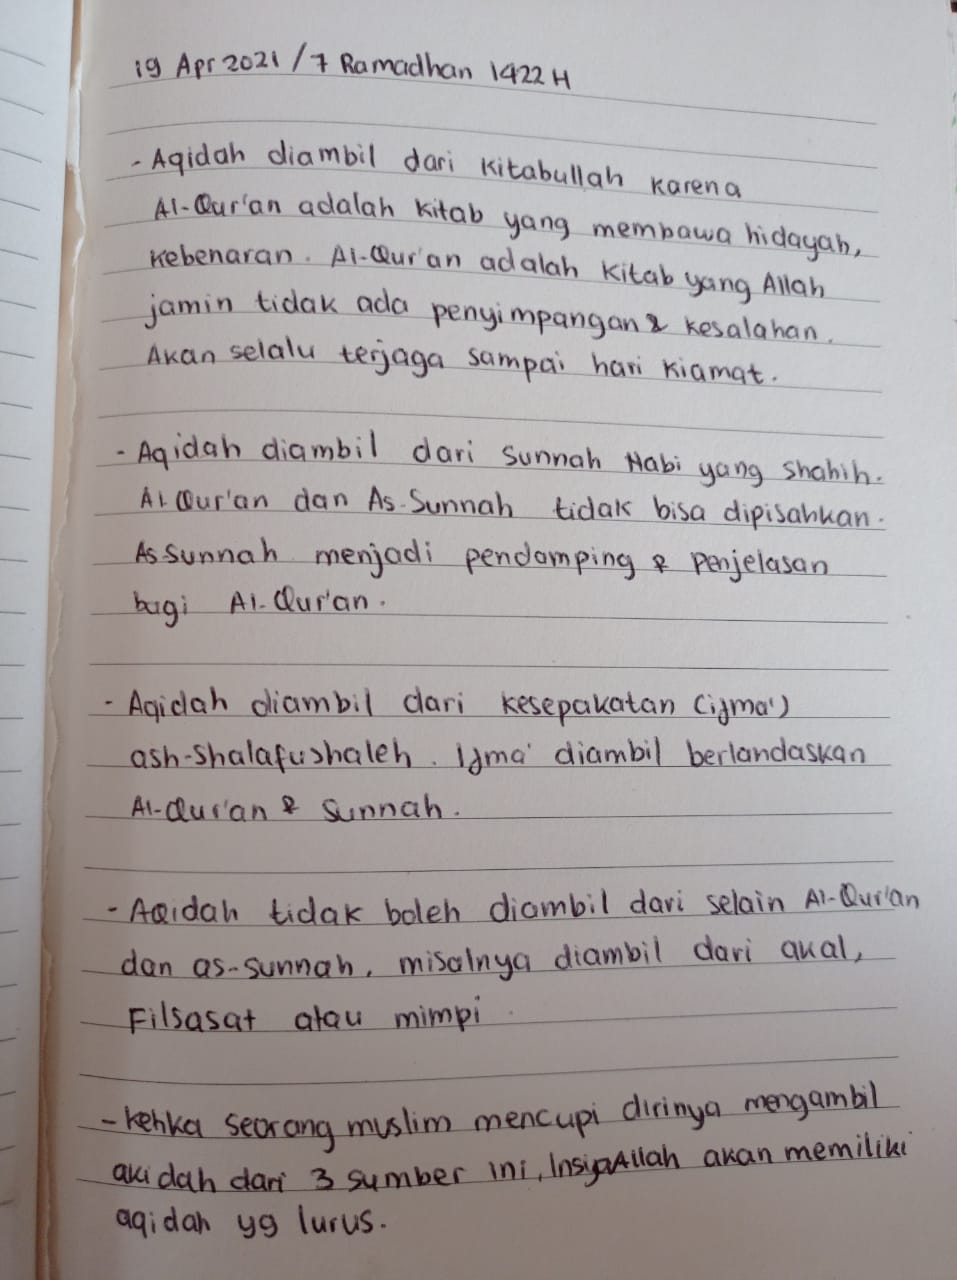 19 Apr 2021 / 7 Ramadhan 1422 H
- Aqidah diambil dari Kitabullah karena
Al-Qur'an adalah kitab yang membawa hidayah,
kebenaran. Al-Qur'an adalah kitab yang Allah
jamin tidak ada penyimpangan & kesalahan.
Akan selalu terjaga sampai hari kiamat.
- Aqidah diambil dari sunnah Nabi yang shahih.
Al Qur'an dan As-Sunnah tidak bisa dipisahkan.
As Sunnah menjadi pendamping & penjelasan
bagi Al-Qur'an.
- Aqidah diambil dari kesepakatan (ijma')
ash-shalafushaleh. Ijma' diambil berlandaskan
Al-Qur'an & Sunnah.
- Aqidah tidak boleh diambil dari selain Al-Qur'an
dan as-sunnah, misalnya diambil dari akal,
Filsasat atau mimpi
- ketika seorang muslim mencupi dirinya mengambil
akidah dari 3 sumber ini, InsyaAllah akan memiliki
aqidah yg lurus.